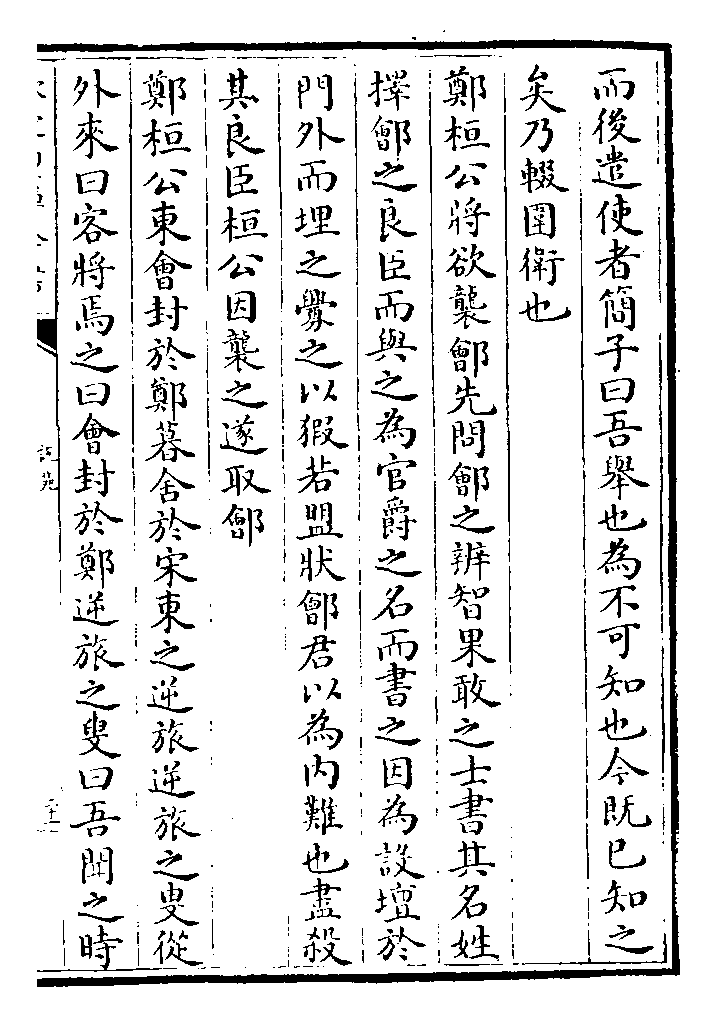 而後遣使者簡子曰吾舉也為不可知也今既已知之
矣乃輟圍衛也
鄭桓公將欲襲鄶先問鄶之辨智果敢之士書其名姓
擇鄶之良臣而與之為官爵之名而書之因為設壇於
門外而埋之釁之以猳若盟狀鄶君以為内難也盡殺
其良臣桓公因襲之遂取鄶
鄭桓公東會封於鄭暮舍於宋東之逆旅逆旅之叟從
外來曰客將焉之曰會封於鄭逆旅之叟曰吾聞之時
說苑